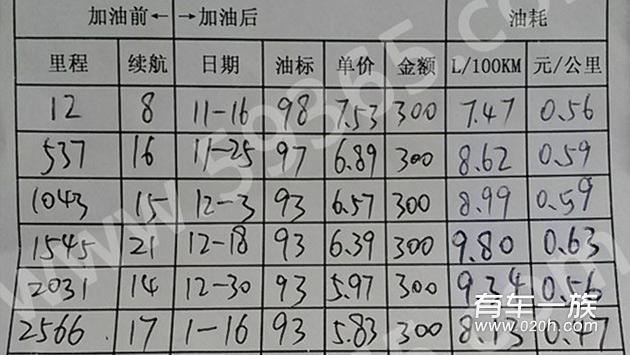 加油前← →加油后 油耗
里程 续航 日期 油标 单价 金额 L/100KM 元/公里
12 8 11-16 98 7.53 300 7.47 0.56
537 16 11-25 97 6.89 300 8.62 0.59
1043 15 12-3 93 6.57 300 8.99 0.59
1545 21 12-18 93 6.39 300 9.80 0.63
2031 14 12-30 93 5.97 300 9.24 0.56
2566 17 1-16 93 5.83 300 0.47
有车一族
www.020h.com